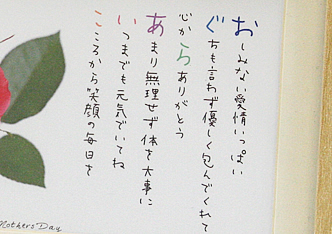 おしみない愛情いっぱい
ぐちも言わず優しく包んでくれて
心からありがとう
あまり無理せず体を大事に
いつまでも元気でいてね
こころから笑顔の毎日を
Mothers Day